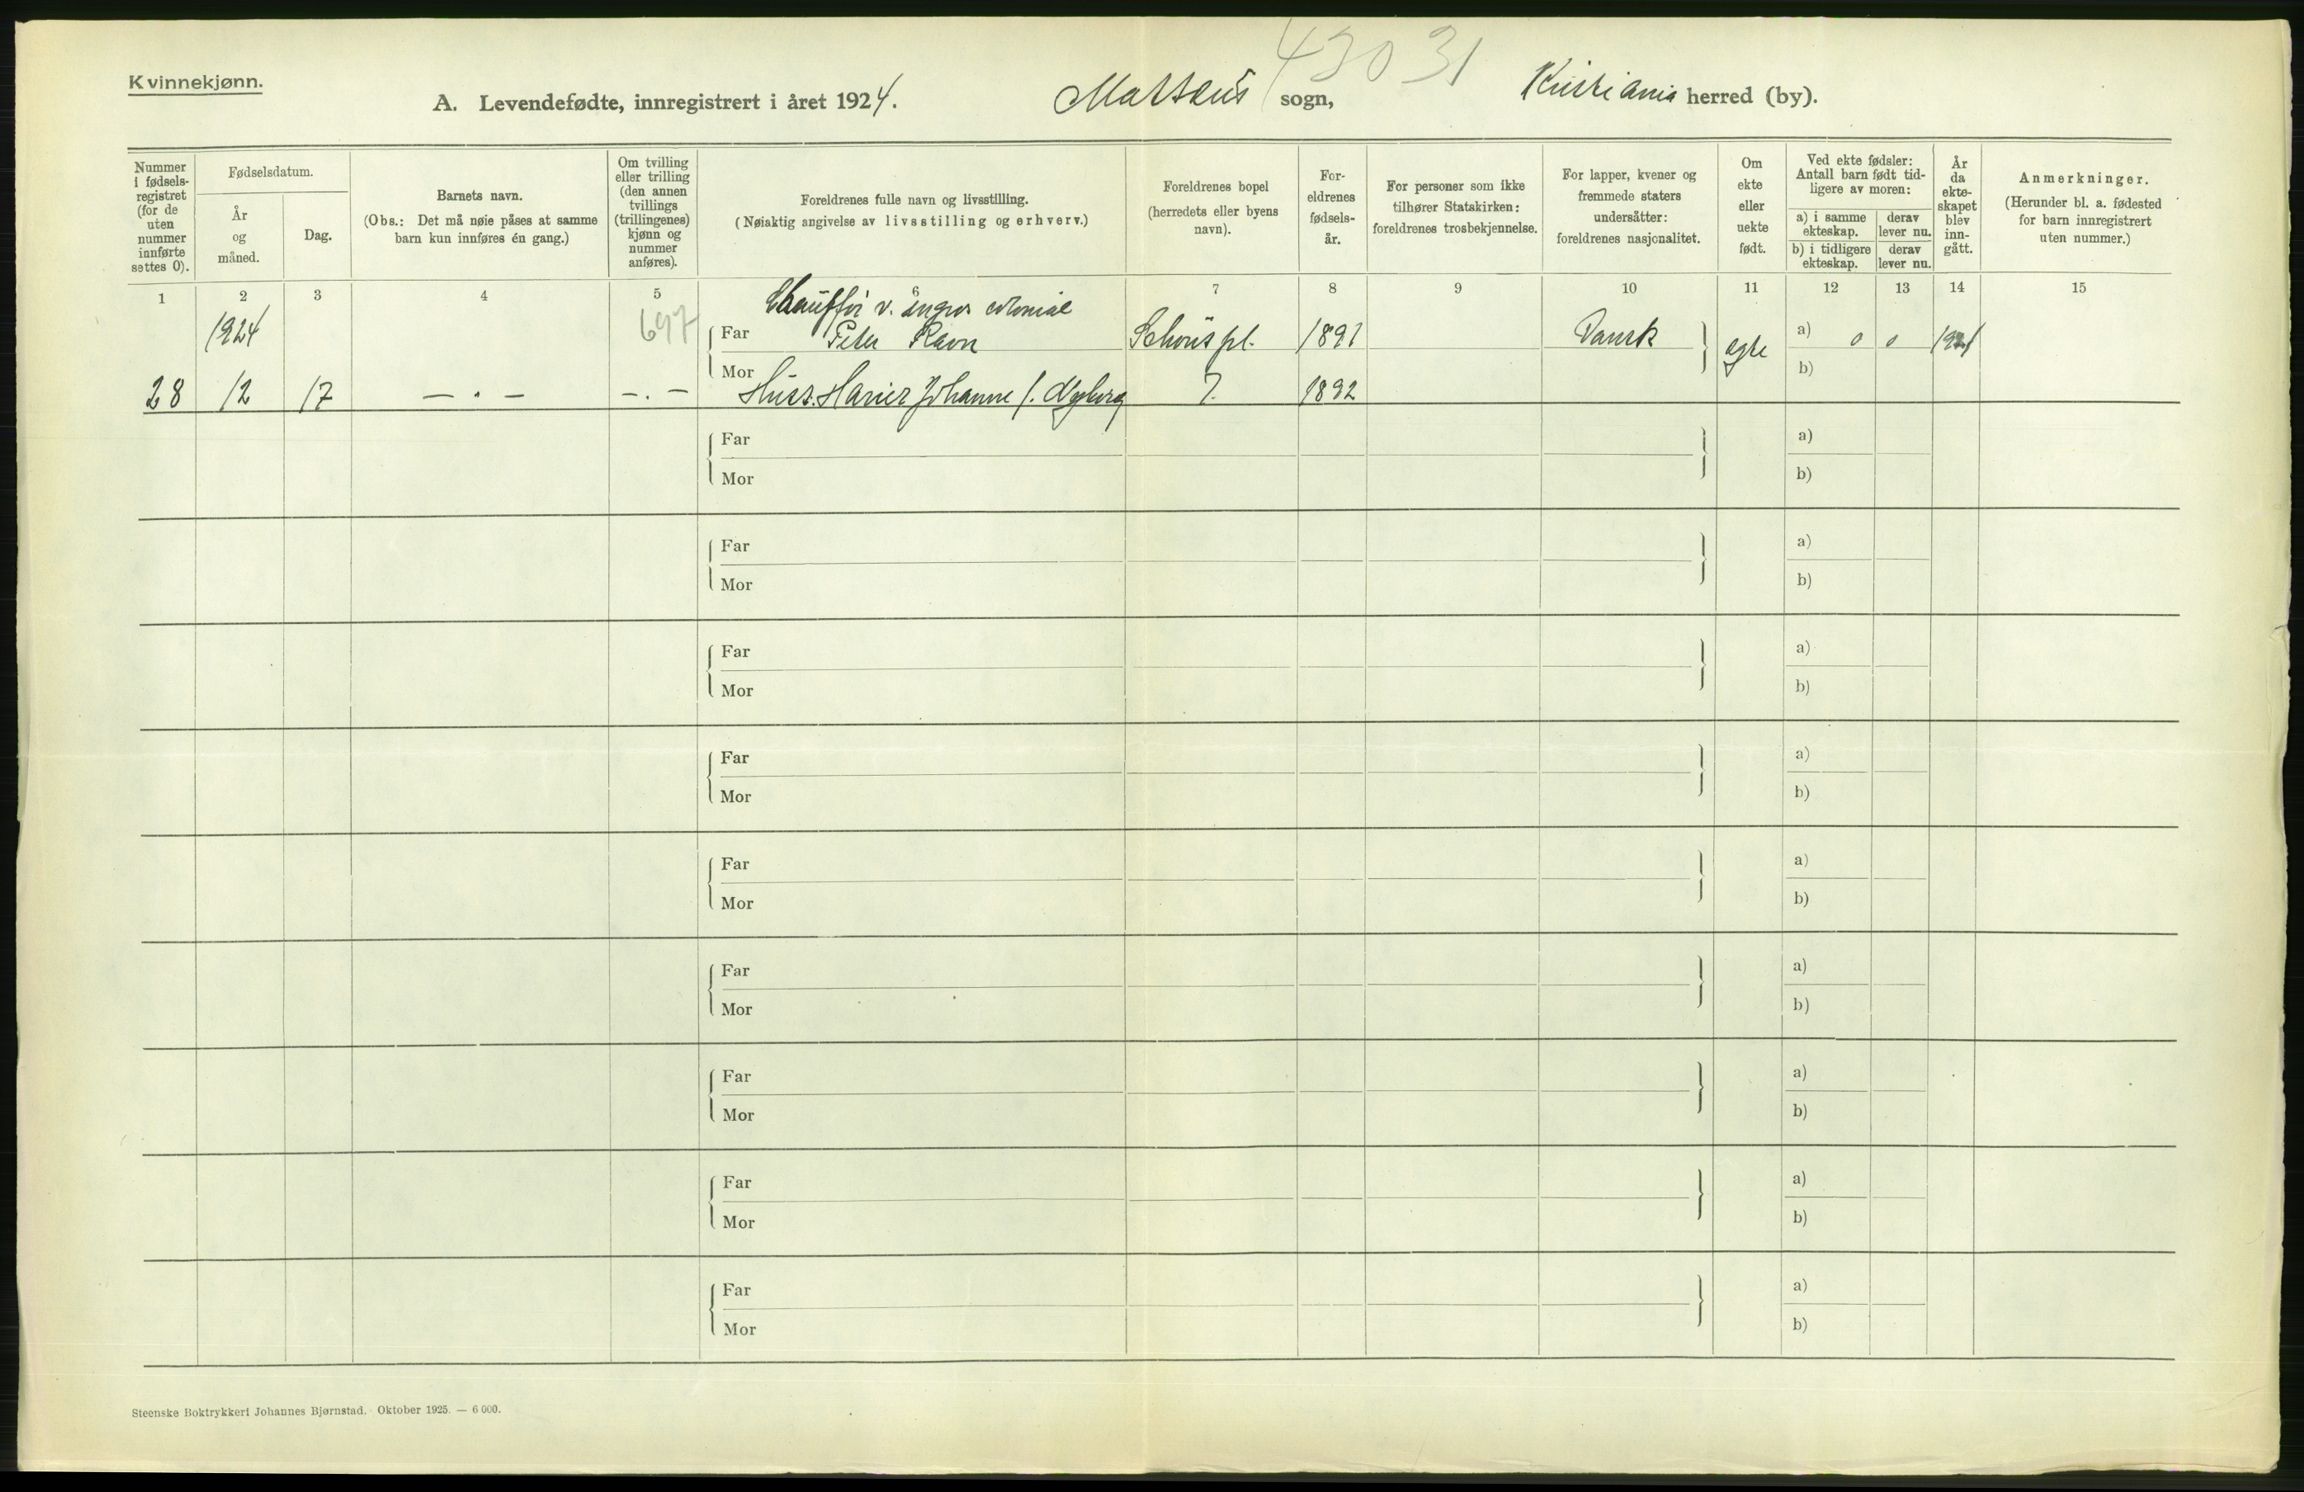 43031
Kvinnekjønn.
A. Levendefødte, innregistrert i året 1924. Mattæus sogn, Kristiania herred (by).
Nummer i fødsels-registret (for de uten nummer innførte settes 0).
Fødselsdatum.
År og måned.
Dag.
Barnets navn.
(Obs.: Det må nøie påses at samme barn kun innføres én gang.)
Om tvilling eller trilling (den annen tvillings (trillingenes) kjønn og nummer anføres).
Foreldrenes fulle navn og livsstilling.
(Nøiaktig angivelse av livsstilling og erhverv.)
Foreldrenes bopel (herredets eller byens navn).
For-eldrenes fødsels-år.
For personer som ikke tilhører Statskirken: foreldrenes trosbekjennelse.
For lapper, kvener og fremmede staters undersåtter: foreldrenes nasjonalitet.
Om ekte eller uekte født.
Ved ekte fødsler: Antall barn født tid-ligere av moren:
a) i samme ekteskap.
derav lever nu.
b) i tidligere ekteskap.
derav lever nu.
År da ekte-skapet blev inn-gått.
Anmerkninger.
(Herunder bl. a. fødested for barn innregistrert uten nummer.)
1 2 3 4 5 6 7 8 9 10 11 12 13 14 15
Chauffør v. engros colonial
1924 697 Far Peter Ravn Schous pl. 1891 Dansk egte a) 0 0 1921
28 12 17 — . — — . — Mor Johanne f. Nyborg 7. 1892 b)
Far a)
Mor b)
Far a)
Mor b)
Far a)
Mor b)
Far a)
Mor b)
Far a)
Mor b)
Far a)
Mor b)
Far a)
Mor b)
Far a)
Mor b)
Far a)
Mor b)
Steenske Boktrykkeri Johannes Bjørnstad. Oktober 1925. — 6 000.